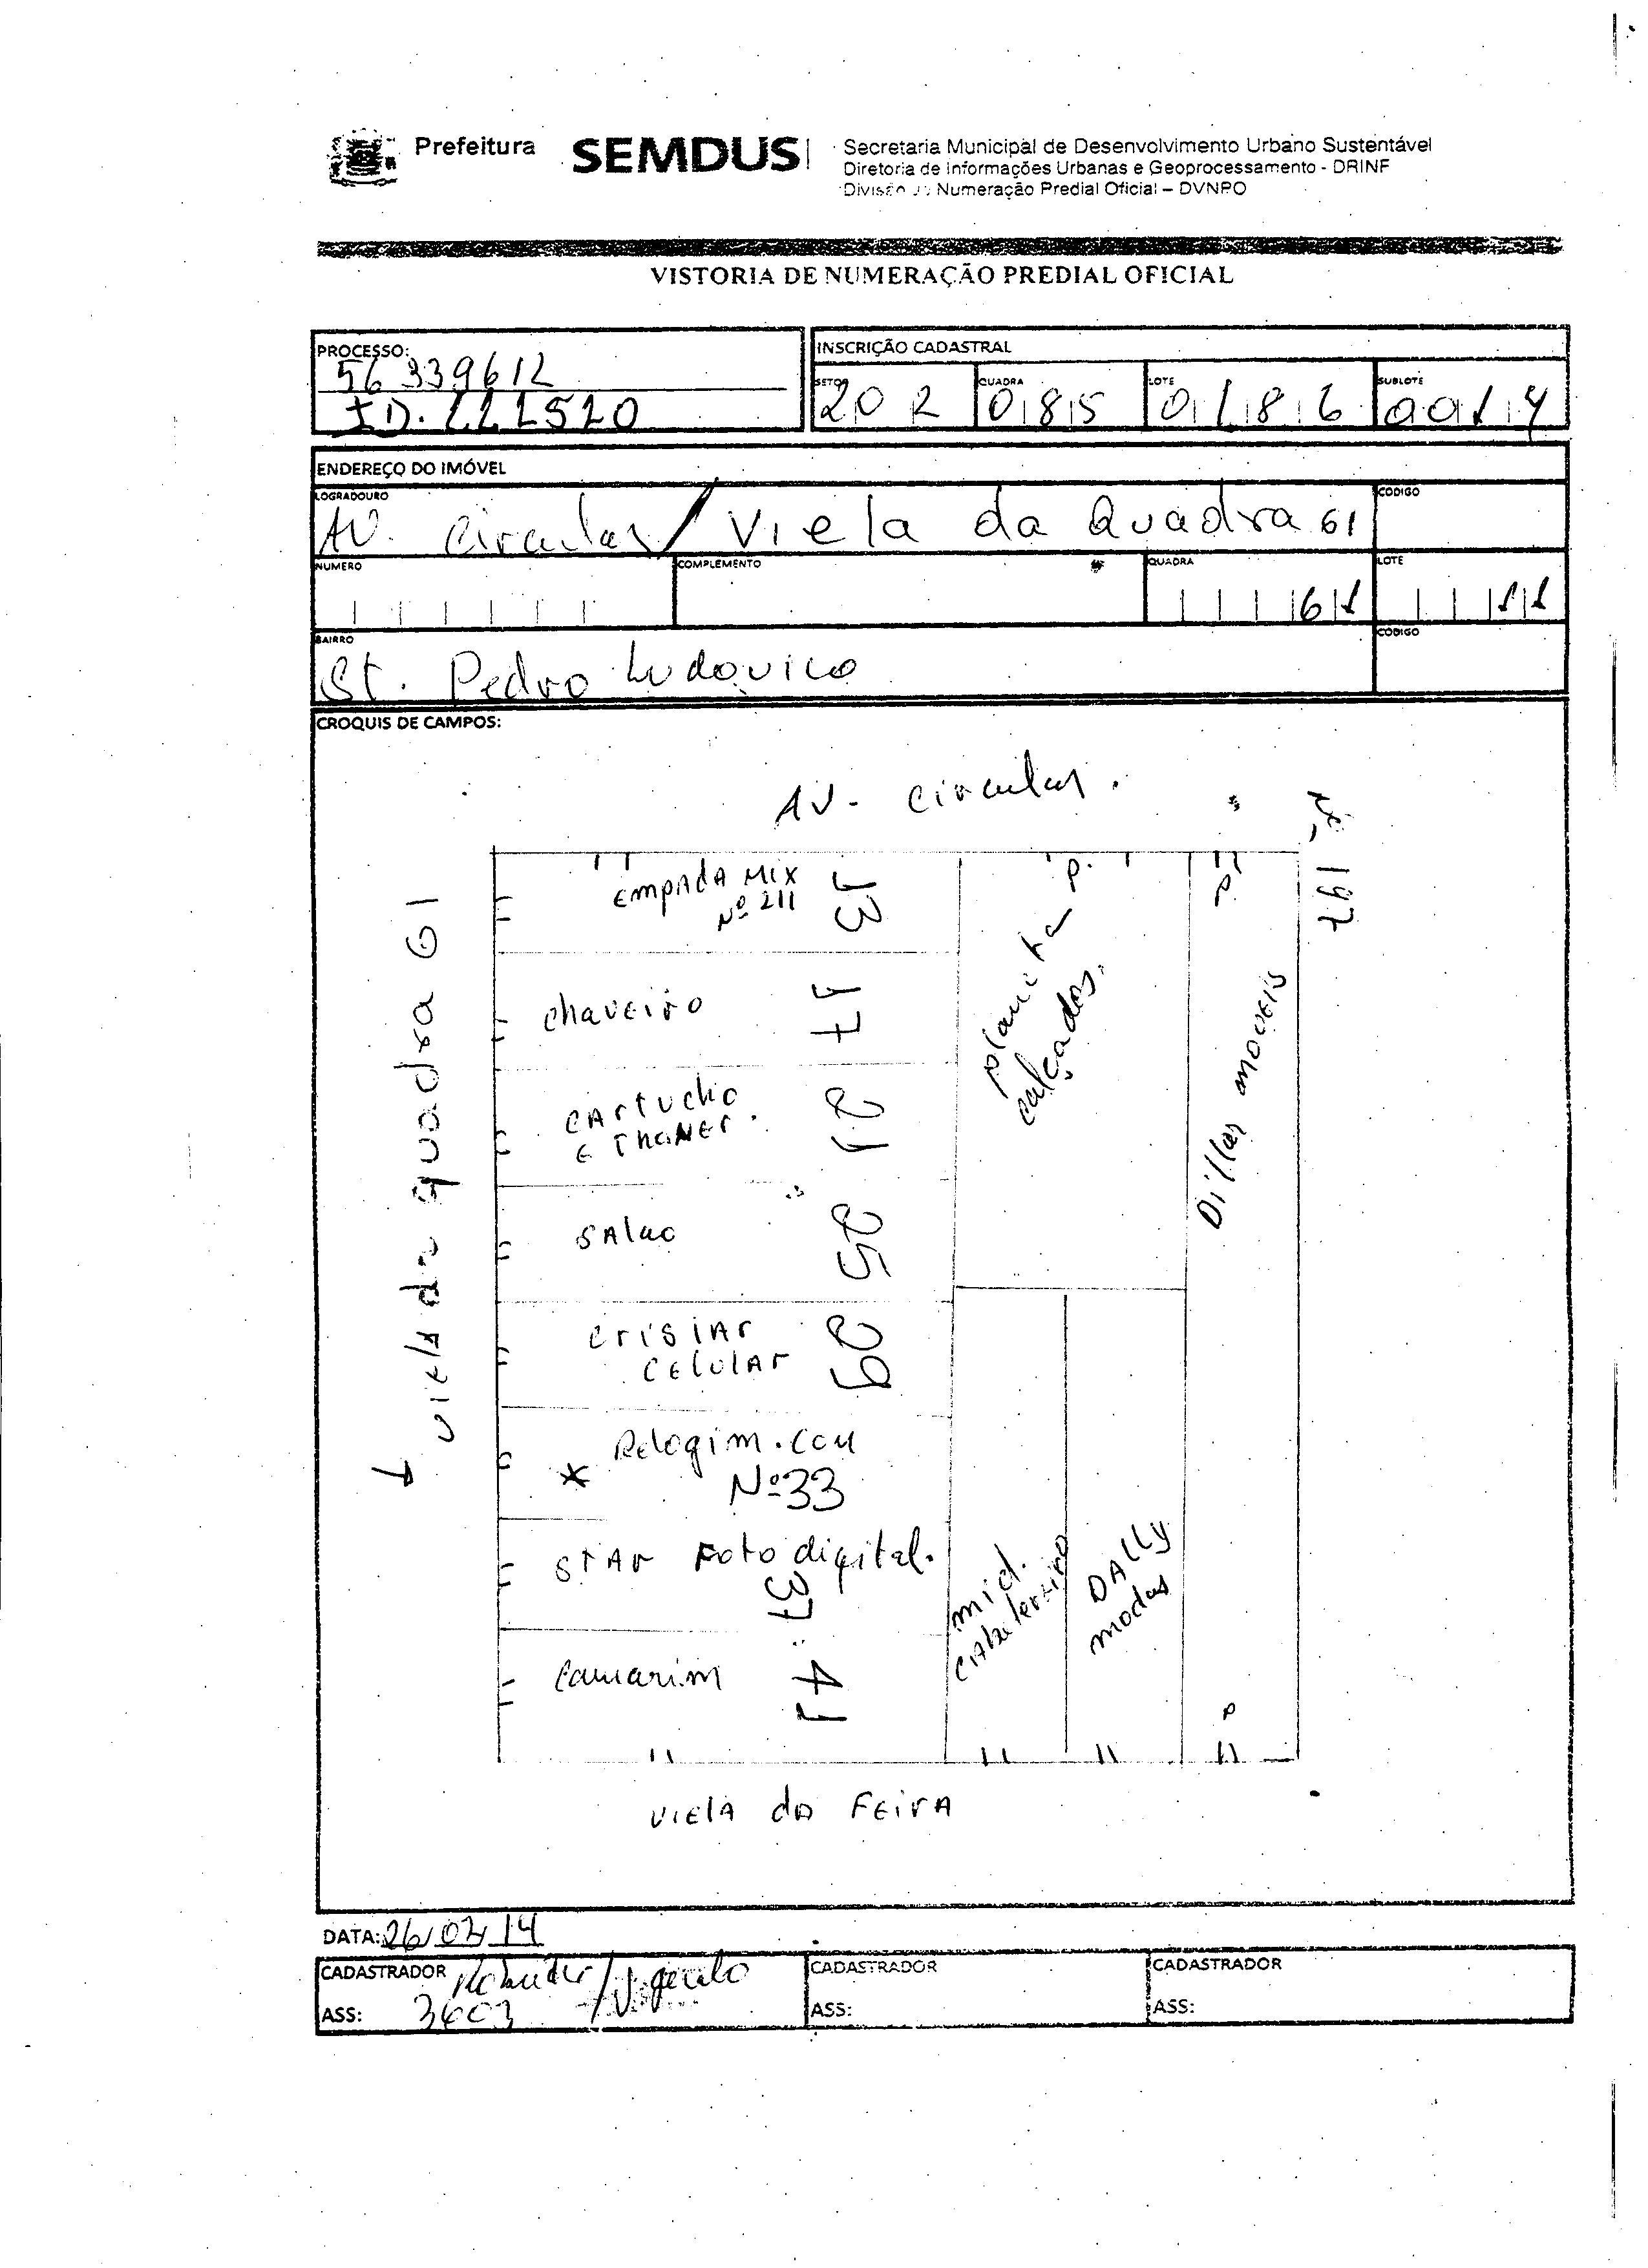 Prefeitura SEMDUS
Secretaria Municipal de Desenvolvimento Urbano Sustentável
Diretoria de Informações Urbanas e Geoprocessamento - DRINF
Divisão de Numeração Predial Oficial – DVNPO
VISTORIA DE NUMERAÇÃO PREDIAL OFICIAL
PROCESSO:
56339612
ID. 111510
INSCRIÇÃO CADASTRAL
SETOR QUADRA LOTE SUBLOTE
20 2 085 0186 0014
ENDEREÇO DO IMÓVEL
LOGRADOURO CÓDIGO
AV. Circular / Viela da Quadra 61
NUMERO COMPLEMENTO QUADRA LOTE
61 11
BAIRRO CÓDIGO
St. Pedro Ludovico
CROQUIS DE CAMPOS:
AV. Circular.
Nº 197
Viela da quadra 61
EMPAdA MIX
Nº 211
13
P.
P.
chaveiro
17
planeta
calçados.
Dillas moveis
CArtucho
E ThoNEr.
21
SAlao
25
CrisiAr
CElulAr
29
* Relogim.com
Nº 33
STAr Foto digital.
37
mid.
CAbelereiro
DAlly
modas
Camarim
41
P
VIElA da FEirA
DATA: 26/02/14
CADASTRADOR CADASTRADOR CADASTRADOR
ASS: 3603 ASS: ASS: